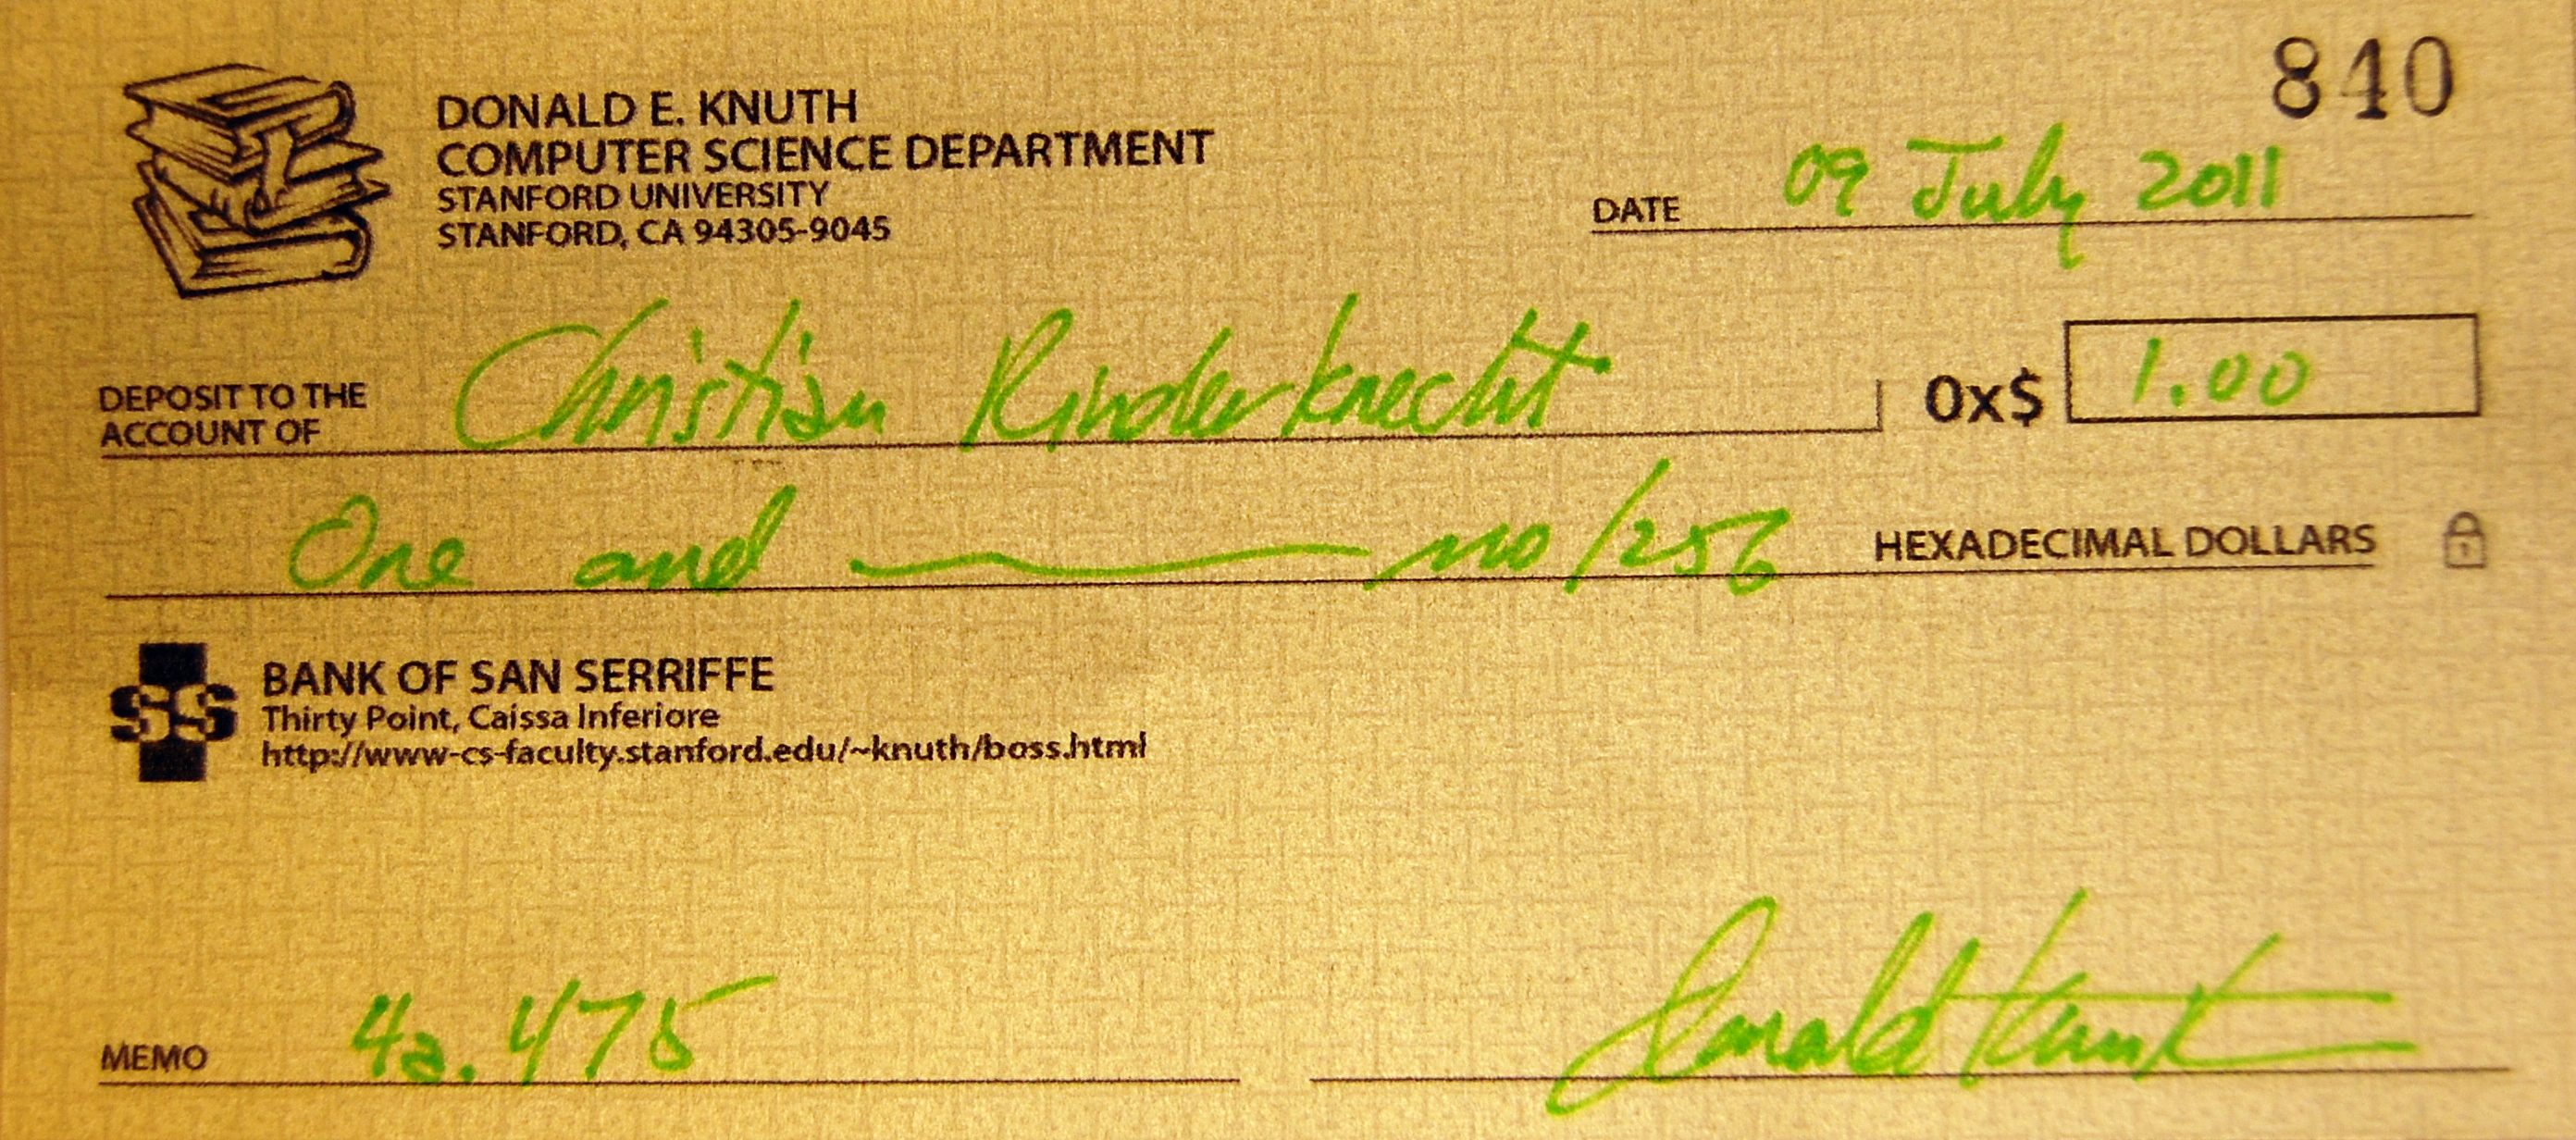 840
DONALD E. KNUTH
COMPUTER SCIENCE DEPARTMENT
STANFORD UNIVERSITY
STANFORD, CA 94305-9045
DATE 09 July 2011
DEPOSIT TO THE
ACCOUNT OF Christian Rinderknecht 0x$ 1.00
One and no/256 HEXADECIMAL DOLLARS
SS BANK OF SAN SERRIFFE
Thirty Point, Caissa Inferiore
http://www-cs-faculty.stanford.edu/~knuth/boss.html
MEMO 4a.475 Donald Knuth